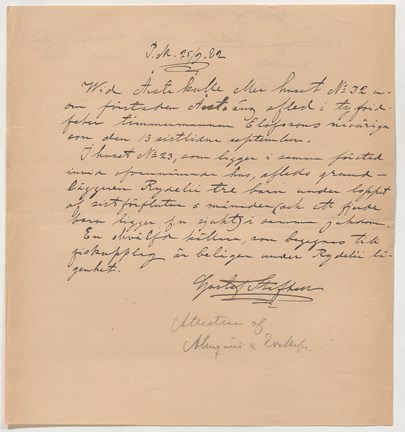 P.M. 25/9 82
Wid Åsteskulle Mer huset No 32 in-
om förstaden afled i tyfoid-
feber timmermannen Elofssons nioåriga
son den 13 sistlidne september.
I huset No 23, som ligger i samma förstad
invid ofvannämnde hus, afledo grund-
läggaren Rydelii tre barn under loppet
af sistförflutna 6 månader (och ett fjerde
barn ligger f.n. sjukt) i samma sjukdom.
En hvälfd källare, som begagnas till
fiskupplag är belägen under Rydelii lä-
genhet.
Gustaf
Attesteras af